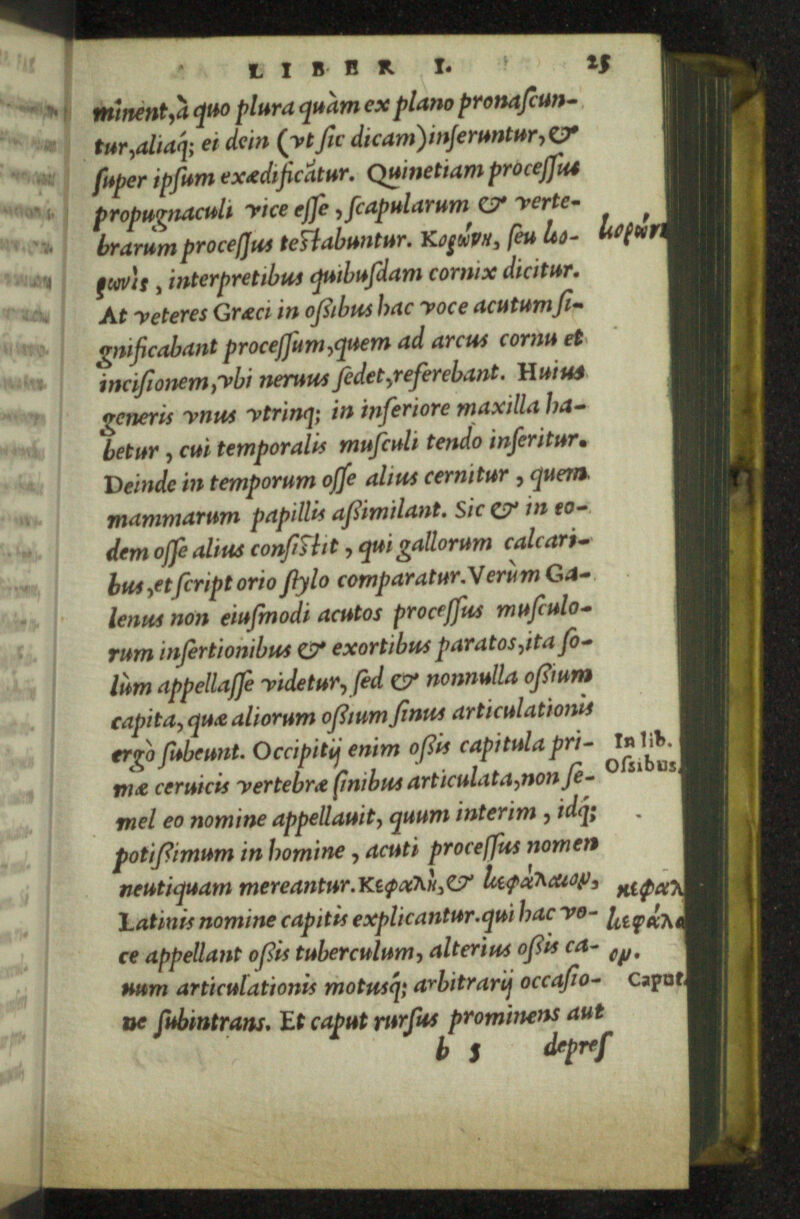 LIBER I. 25
minent, à quo plura quàm ex plano pronascun-
tur, aliaq; ei dein (vt sic dicam) inseruntur, &
super ipsum exædificatur. Quinetiam processus
propugnaculi vice esse, scapularum & verte-
brarum processus testabuntur. Κορώνη, seu κο-
ρωνὶς, interpretibus quibusdam cornix dicitur.
At veteres Græci in oßibus hac voce acutum si-
gnificabant processum, quem ad arcus cornu et
incisionem, vbi neruus sedet, referebant. Huius
generis vnus vtrinq; in inferiore maxilla ha-
betur, cui temporalis musculi tendo inseritur.
Deinde in temporum osse alius cernitur, quem
mammarum papillis aßimilant. Sic & in eo-
dem osse alius consistit, qui gallorum calcari-
bus, et scriptorio stylo comparatur. Verùm Ga-
lenus non eiusmodi acutos processus musculo-
rum insertionibus & exortibus paratos, ita so-
lùm appellasse videtur, sed & nonnulla oßium
capita, quæ aliorum oßium sinus articulationis
ergò subeunt. Occipitij enim oßis capitula pri-
mæ ceruicis vertebræ sinibus articulata, non se-
mel eo nomine appellauit, quum interim, idq;
potißimum in homine, acuti processus nomen
neutiquam mereantur. Κεφαλὴ, & κεφάλαιον,
Latinis nomine capitis explicantur. qui hac vo-
ce appellant oßis tuberculum, alterius oßis ca-
uum articulationis motusq; arbitrarij occasio-
ne subintrans. Et caput rursus prominens aut
b 5 depres
κορώνη
In lib.
Ossibus.
κεφαλ
κεφάλα
ον.
Caput.